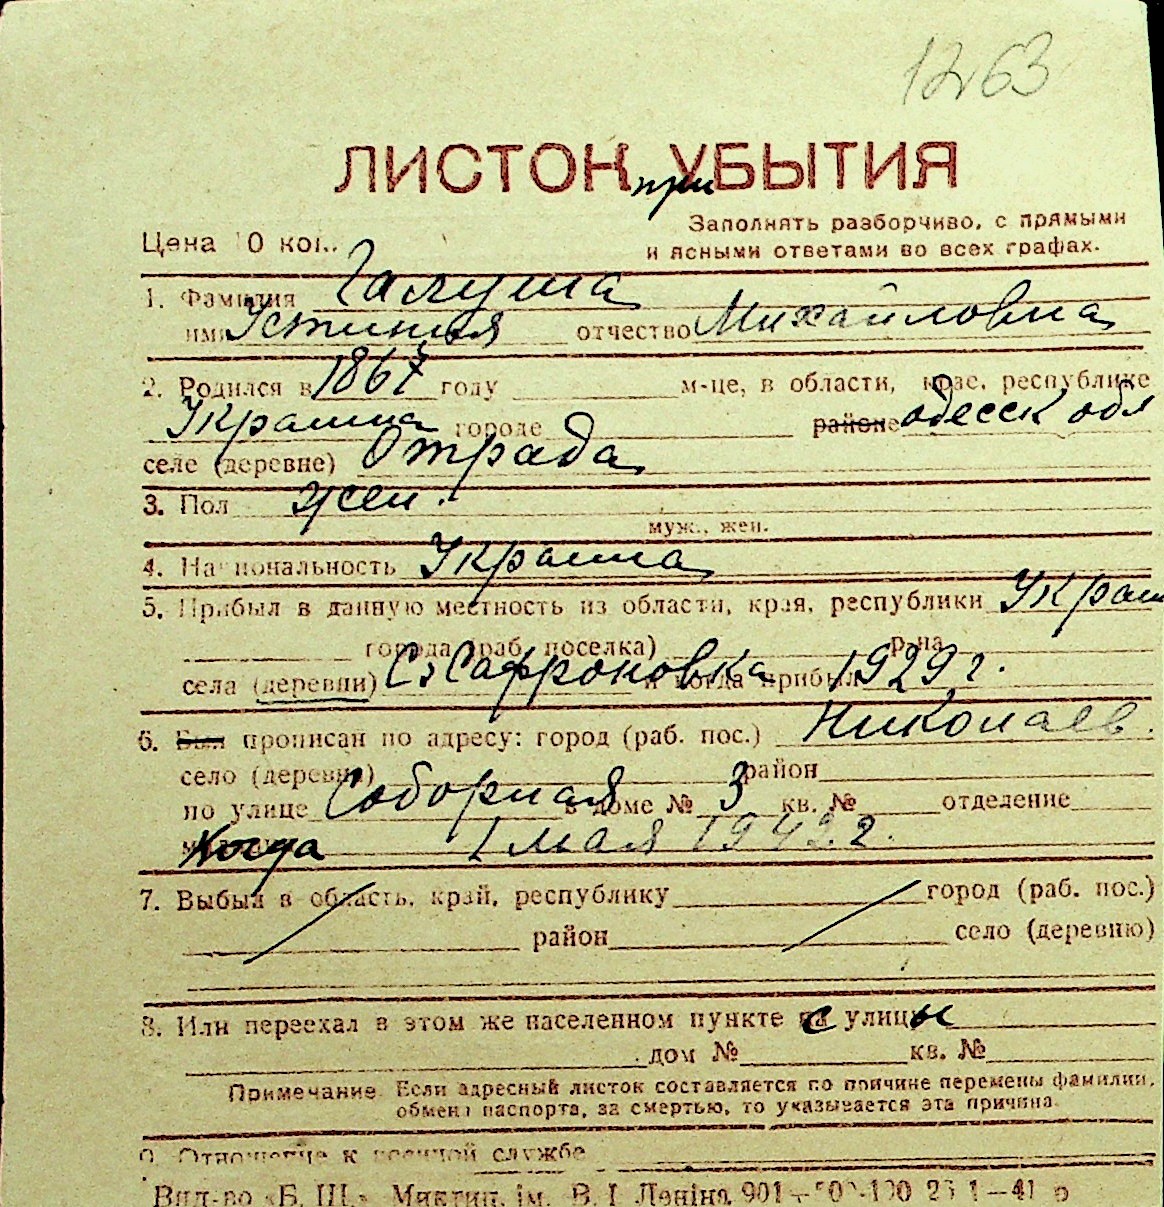 1263
ЛИСТОК при УБЫТИЯ
Заполнять разборчиво, с прямыми
Цена 10 коп.
и ясными ответами во всех графах.
1. Фамилия Галуша
имя Устинья отчество Михайловна
2. Родился в 1867 году м-це, в области, крае, республике
Украина городе районе одесск обл
селе (деревне) Отрада
3. Пол жен.
муж., жен.
4. Национальность Украина
5. Прибыл в данную местность из области, края, республики Украи
города (раб. поселка) р-на
села (деревни) С. Сафроновка и когда прибыл 1929 г.
6. Был прописан по адресу: город (раб. пос.) Николаев.
село (деревня) район
по улице Соборная в доме № 3 кв. № отделение
Когда 1 мая 1942 г.
7. Выбыл в область, край, республику город (раб. пос.)
район село (деревню)
8. Или переехал в этом же населенном пункте с улицы
дом № кв. №
Примечание. Если адресный листок составляется по причине перемены фамилии,
обмена паспорта, за смертью, то указывается эта причина.
9. Отношение к военной службе
Вид-во «Б. Ш.» Миктип. ім. В. І. Леніна 901